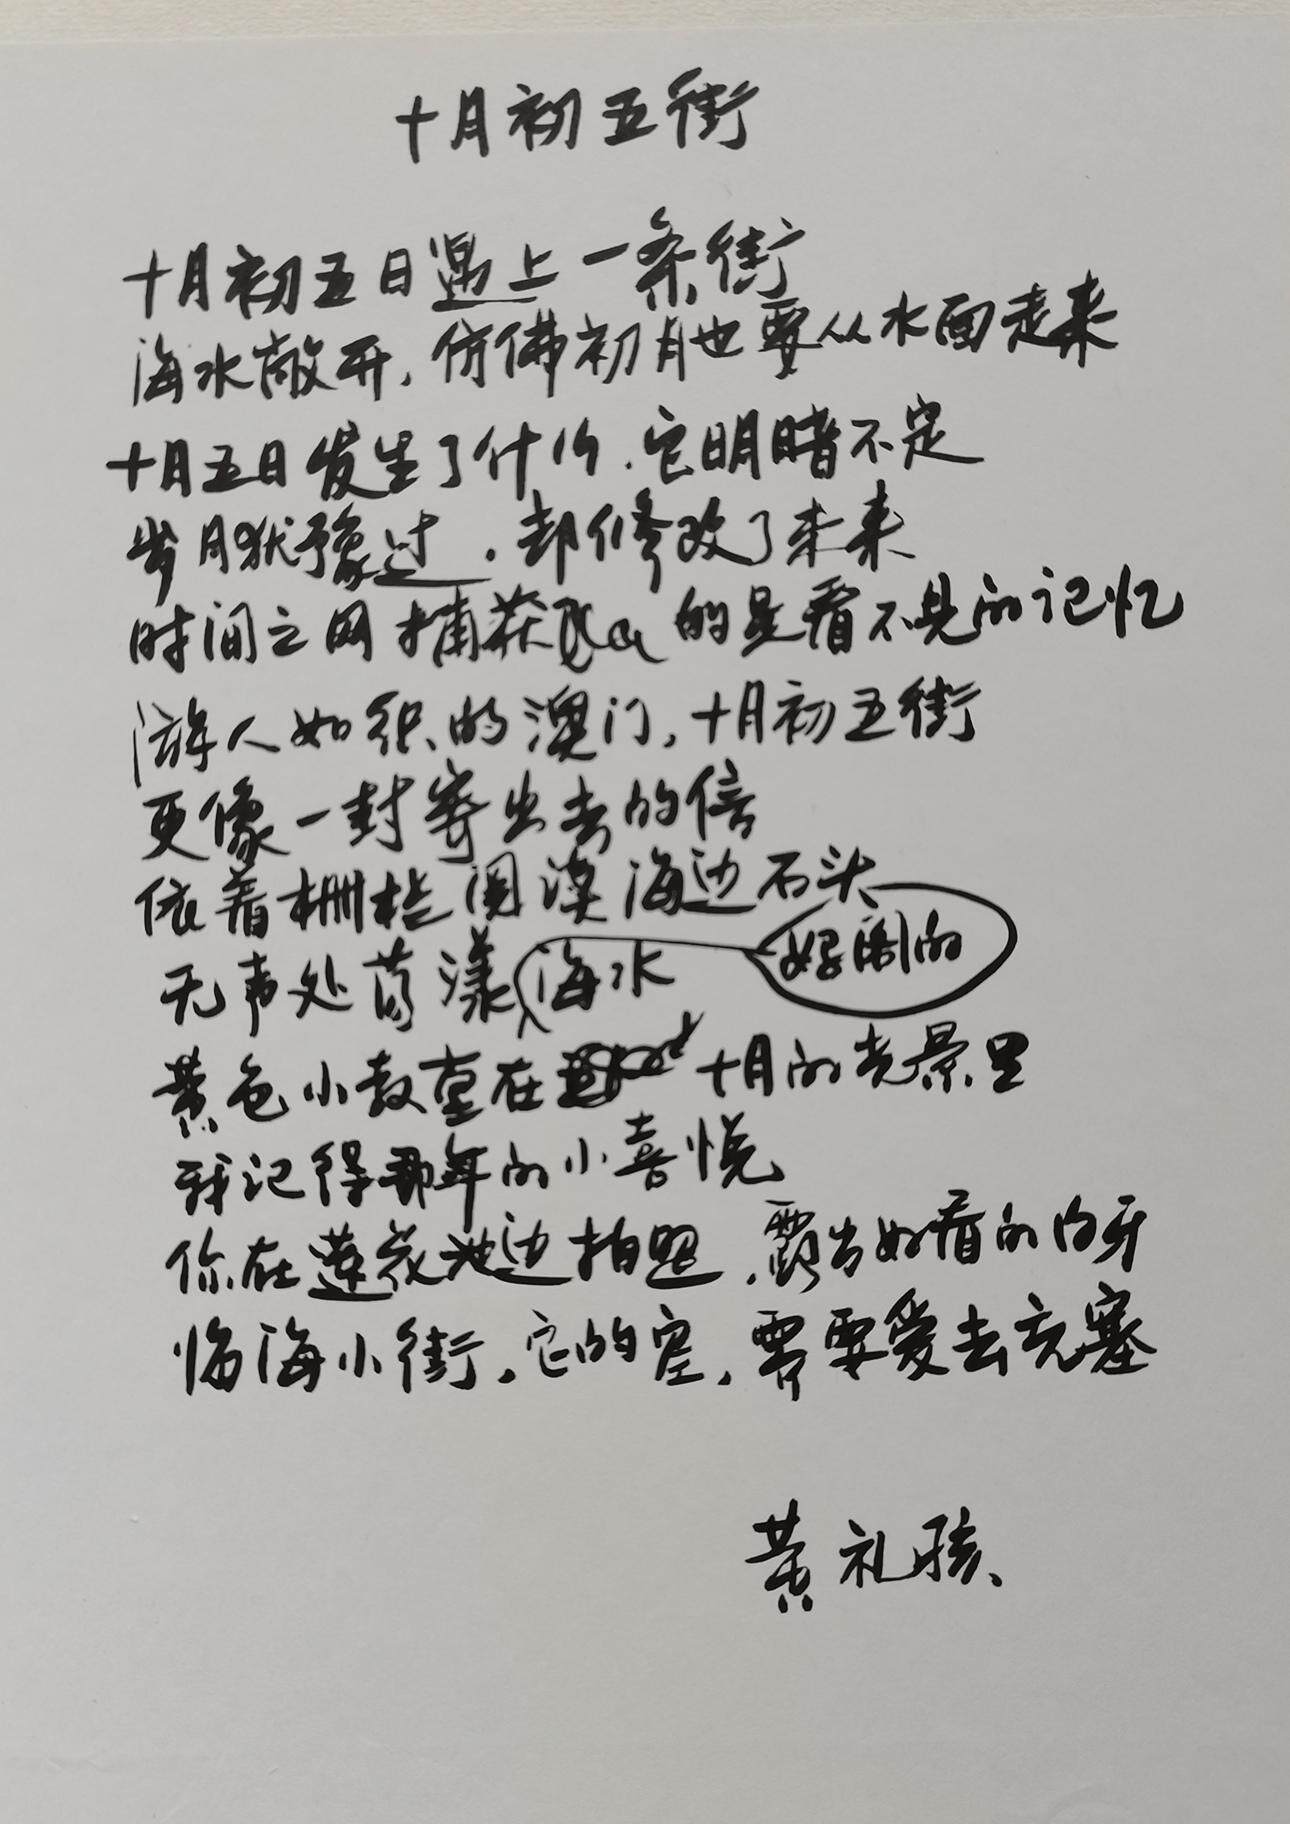 十月初五街
十月初五日遇上一条街
海水敞开，仿佛初月也要从水面走来
十月五日发生了什么，它明暗不定
岁月犹豫过，却修改了未来
时间之网捕获的是看不见的记忆
游人如织的澳门，十月初五街
更像一封寄出去的信
依着栅栏阅读海边石头
无声处荡漾海水
好闻的
黄色小教堂在十月的光景里
我记得那年的小喜悦
你在莲花池边拍照，露出好看的白牙
临海小街，它的空，需要爱去充塞
黄礼孩